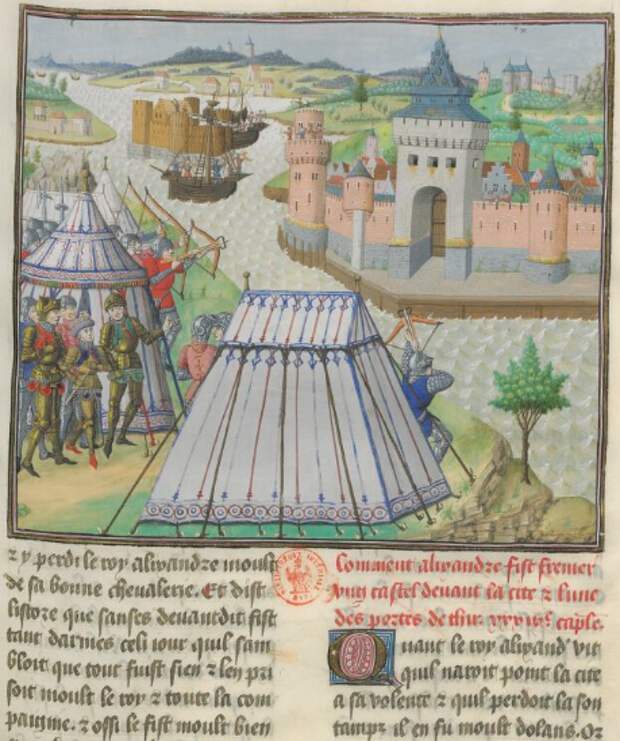 ⁊ y perdi le roy alixandre moult
de sa bonne cheualerie. Et dist
listore que sanses deuantdit fist
tant darmes celi iour quil sam
bloit que tout fuist sien ⁊ len pri
soit moult le roy ⁊ toute la com
paignie. ⁊ ossi le fist moult bien
Comment alixandre fist fremer
vng castel deuant la cite ⁊ lune
des portes de thir. caple.
Quant le roy alixand' vit
quil nauoit point la cite
a sa volente ⁊ quil perdoit la son
tamps il en fu moult dolans. Or